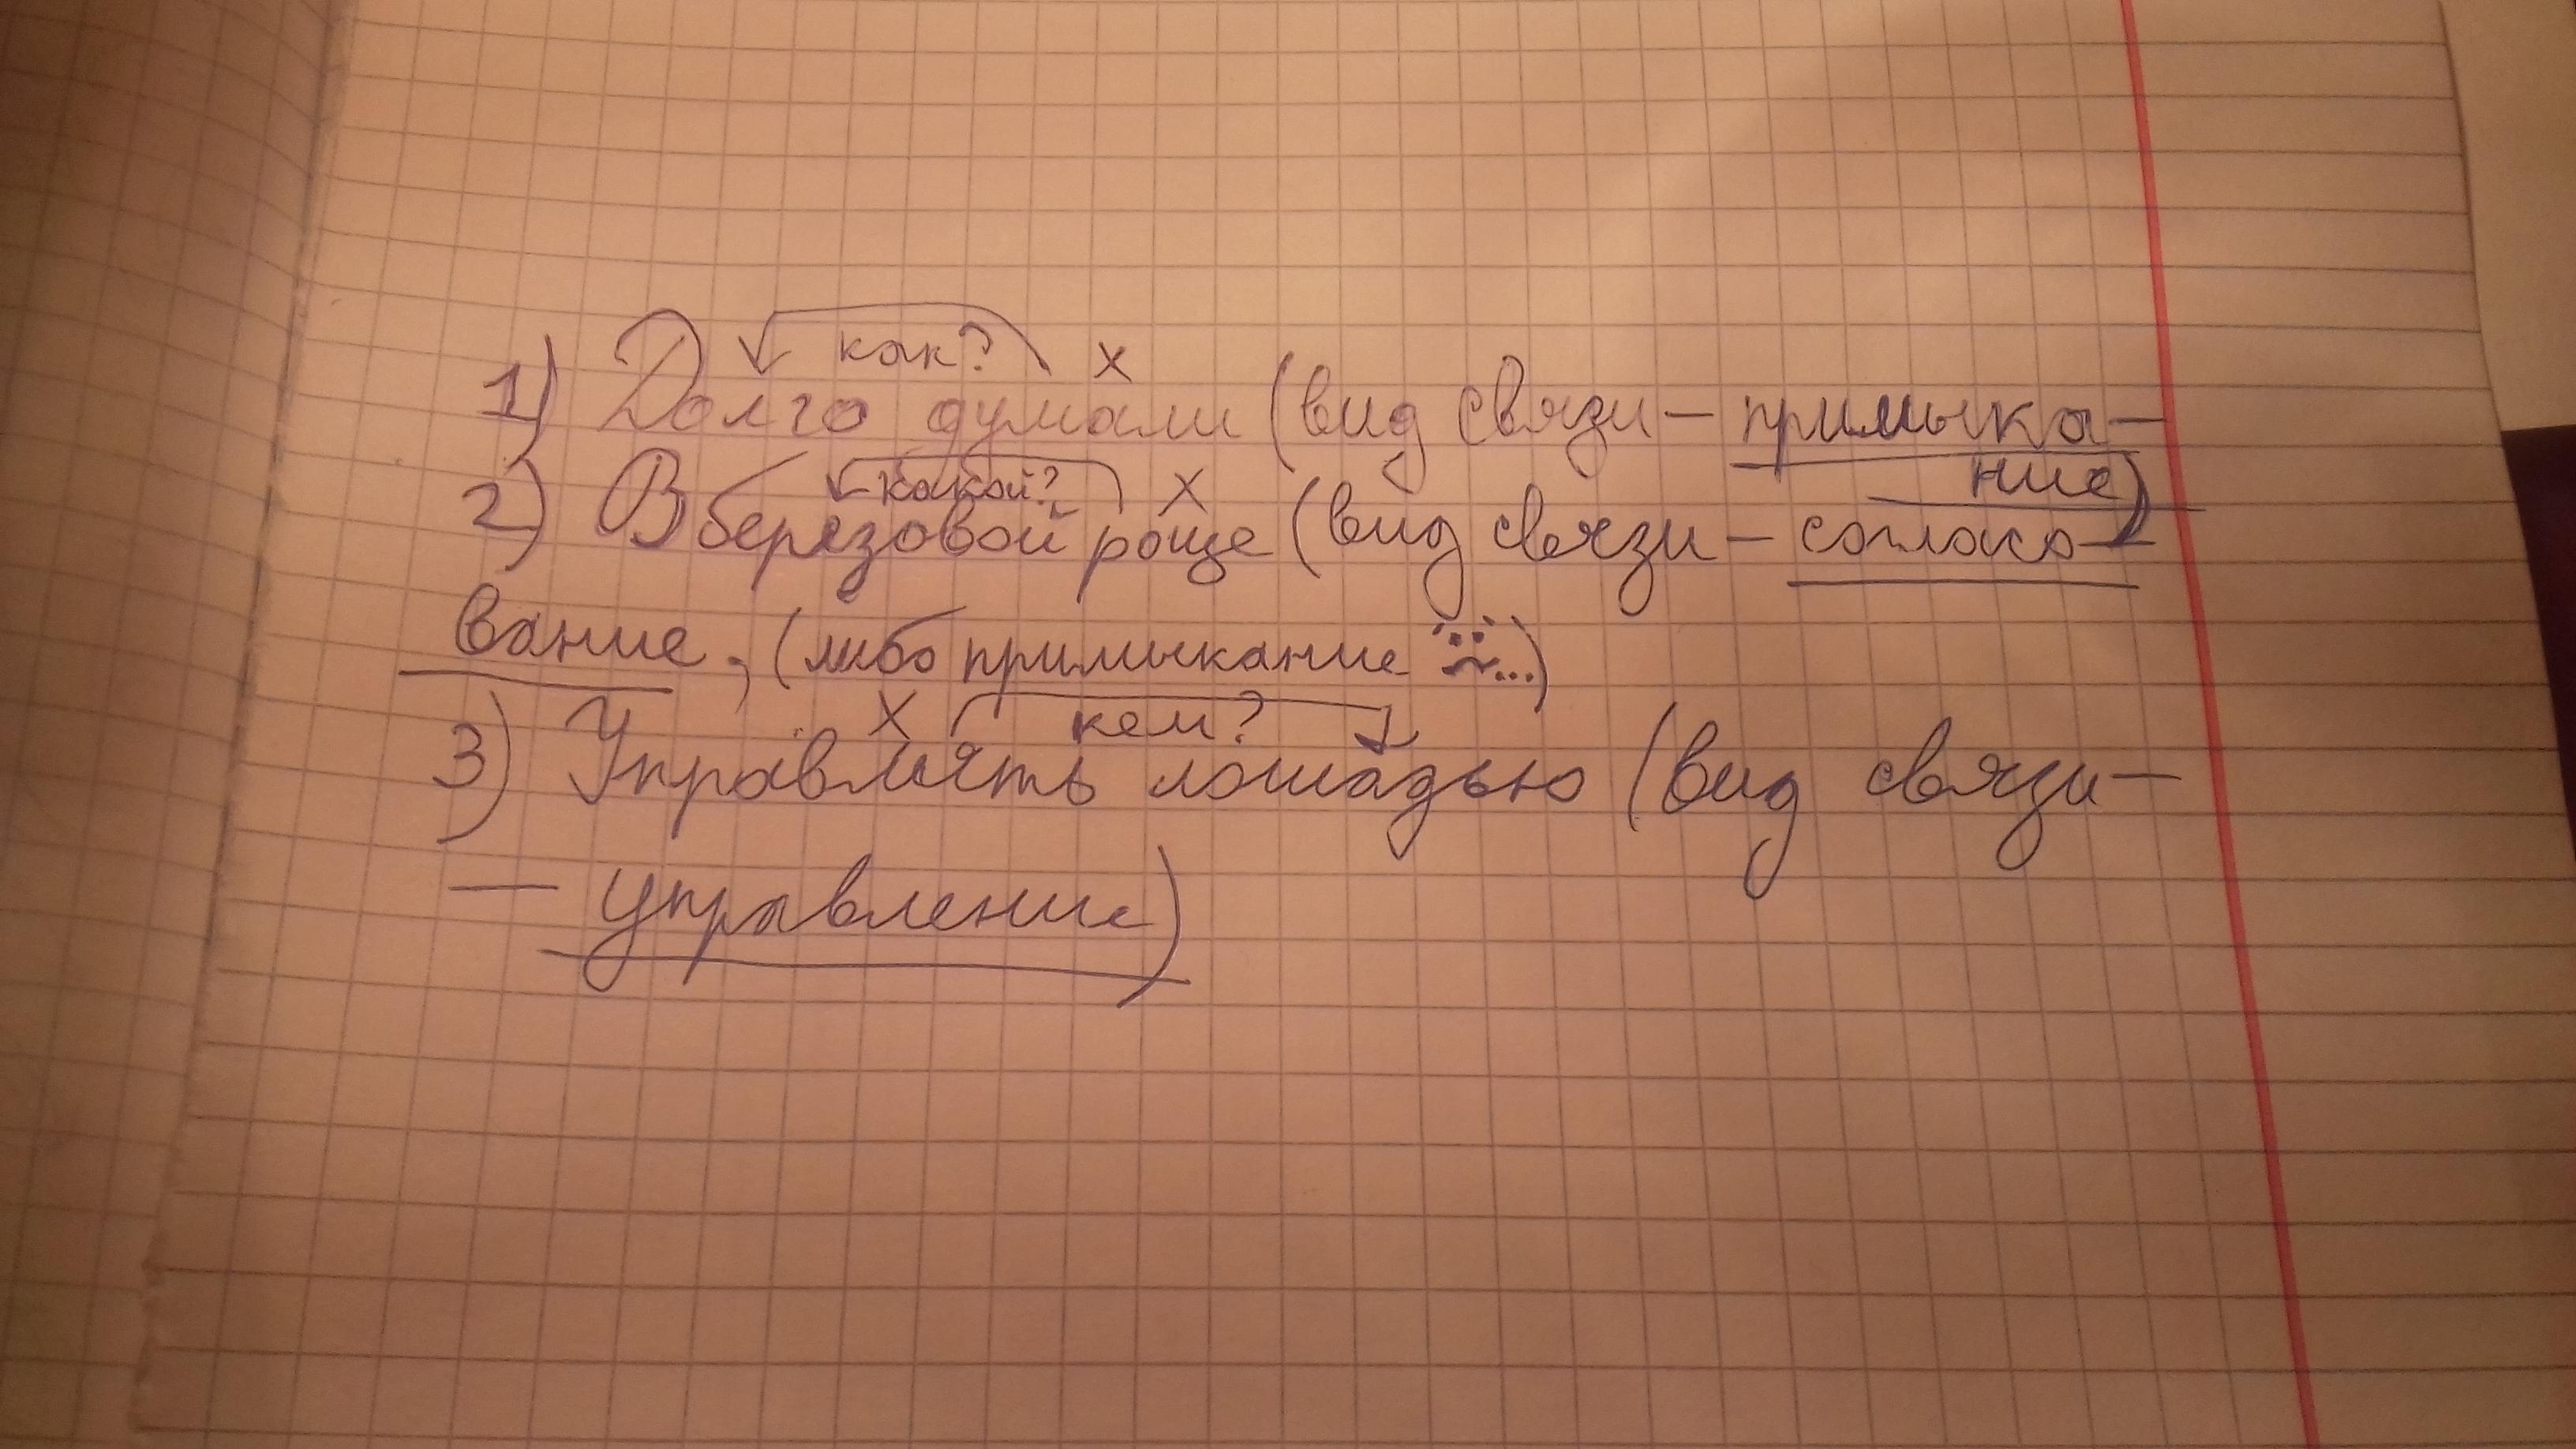 как? х
1) Долго думали (вид связи – примыка-
ние)
какой? х
2) В березовой роще (вид связи – согласо-
вание, (либо примыкание ...)
х кем?
3) Управлять лошадью (вид связи –
– управление)